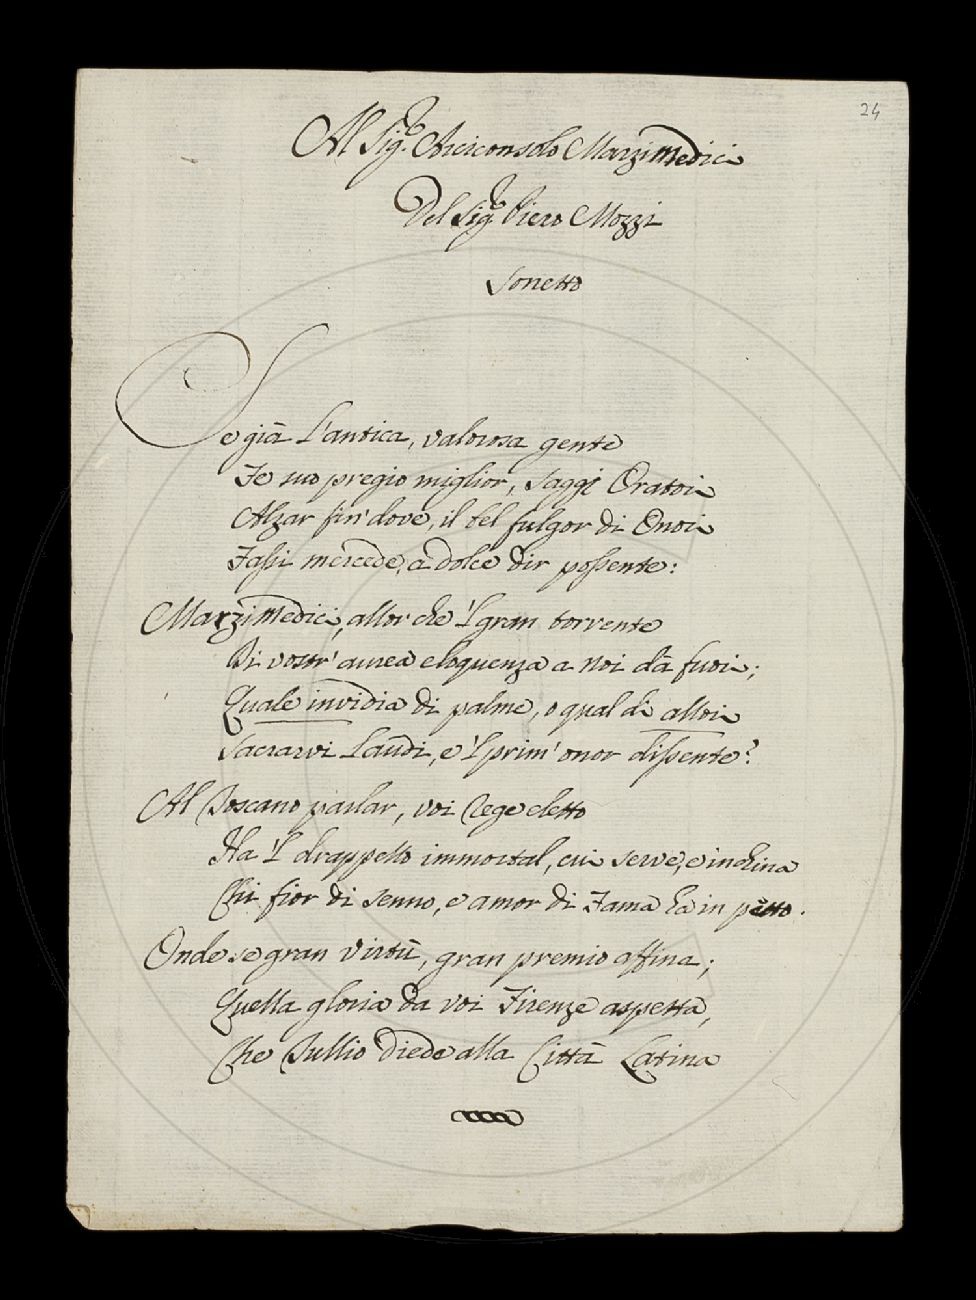 24
Al Sig.re Arciconsolo Marzimedici
Del Sig.re Piero Mozzi
Sonetto
Se già l'antica, valorosa gente
Fe suo pregio miglior, saggi Oratori
Alzar fin' dove, il bel fulgor di Onori
Fassi mercede, a dolce dir possente:
Marzimedici, allor che 'l gran torrente
Di vostr' aurea eloquenza a noi dà fuori;
Quale invidia di palme, o qual di allori
Sacrarvi Laudi, e 'l prim' onor dissente?
Al Toscano parlar, voi Rege eletto
Ha 'l drappello immortal, cui serve, e inchina
Chi fior di senno, e amor di Fama ha in petto.
Onde se gran virtù, gran premio affina;
Quella gloria da voi Firenze aspetta,
Che Tullio diede alla Città Latina